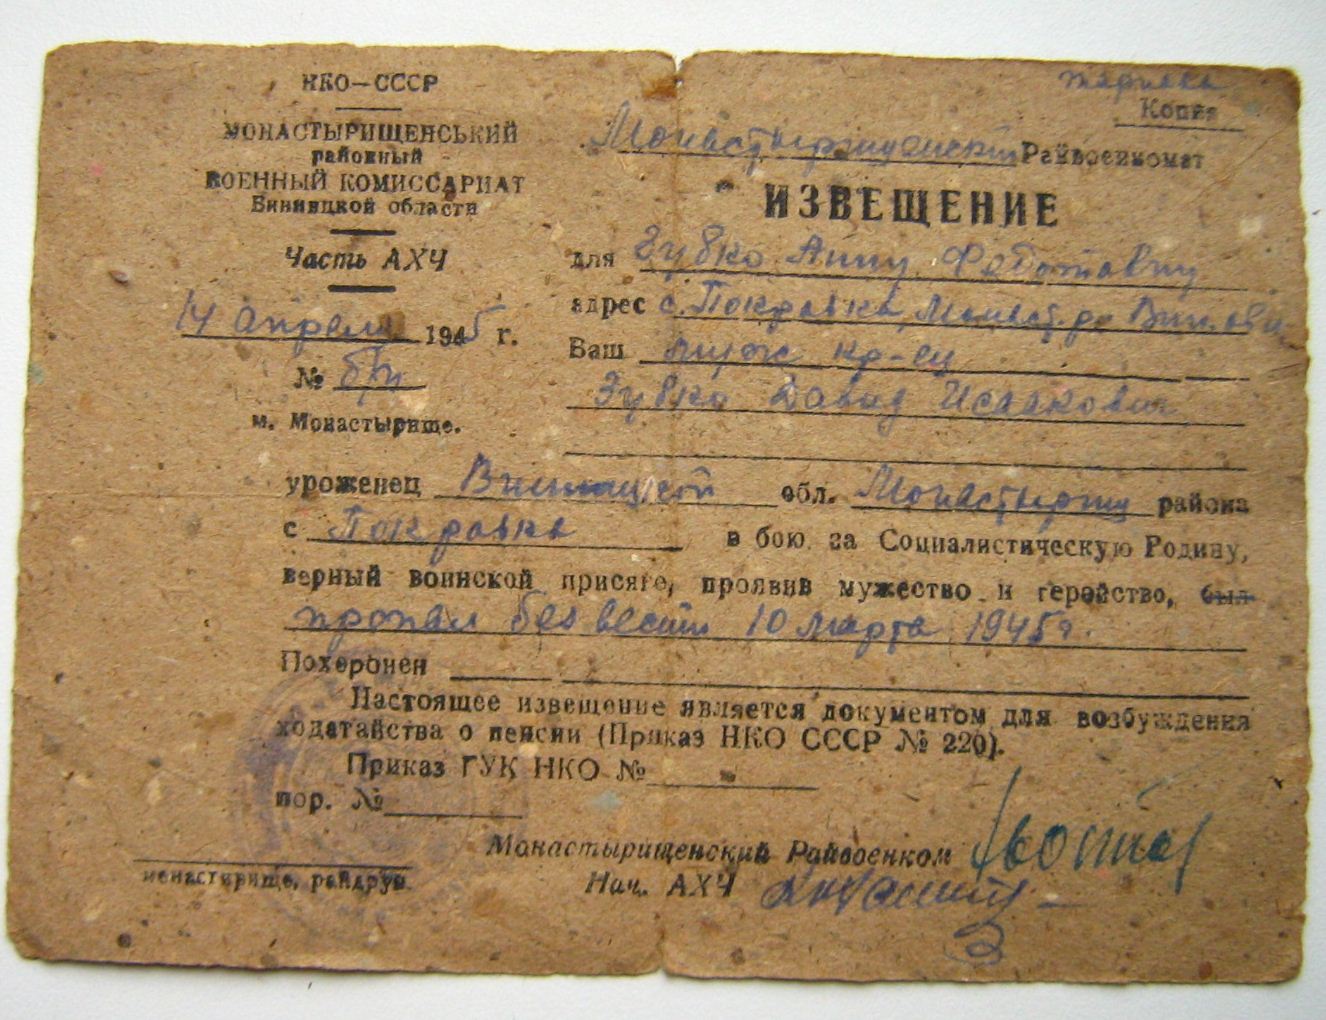 НКО—СССР
МОНАСТЫРИЩЕНСЬКИЙ
районный
ВОЕННЫЙ КОМИССАРИАТ
Винницкой области
Часть АХЧ
14 апреля 1945 г.
№ б/н
м. Монастырище.
Копия
Райвоенкомат
ИЗВЕЩЕНИЕ
для Зубко Анну
адрес с. Покровка, Монаст. р
Ваш муж кр-ец
Зубко Давид Исаакович
уроженец Винницкой обл. Монастырищ района
с Покровка в бою за Социалистическую Родину,
верный воинской присяге, проявив мужество и геройство, был
пропал без вести 10 марта 1945 г.
Похоронен
Настоящее извещение является документом для возбуждения
ходатайства о пенсии (Приказ НКО СССР № 220).
Приказ ГУК НКО №
пор. №
Монастырищенский Райвоенком
Нач. АХЧ
монастирище, райдрук.